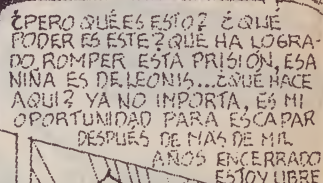 ¿PERO QUÉ ES ESTO? ¿QUE
PODER ES ESTE? QUÉ HA LOGRA-
DO ROMPER ESTA PRISIÓN, ESA
NIÑA ES DE LEONIS... ¿QUÉ HACE
AQUÍ? YA NO IMPORTA, ES MI
OPORTUNIDAD PARA ESCAPAR
DESPUÉS DE MAS DE MIL
AÑOS ENCERRADO
ESTOY LIBRE